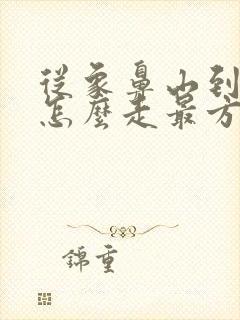 從象鼻山到
怎麼走最方
錦重